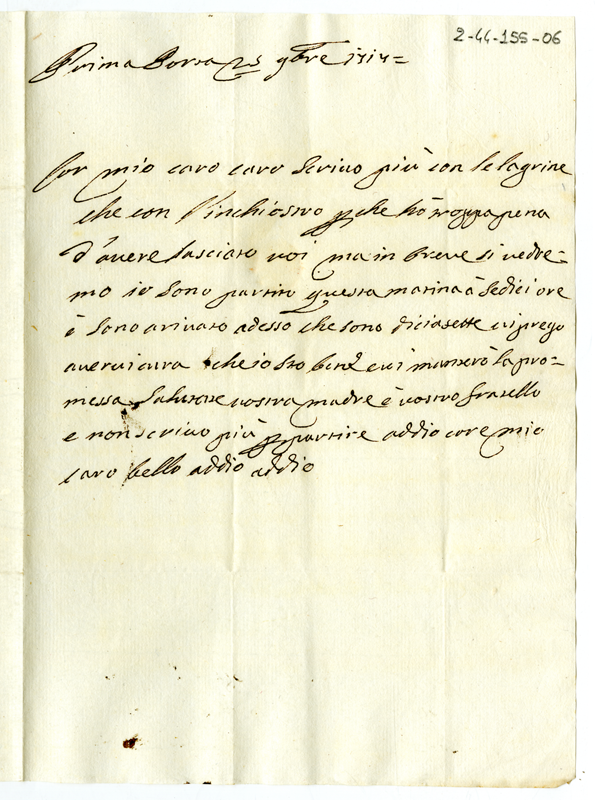 2-44-155-06
Prima Borra 25 9bre 1717=
Cor mio caro caro scrivo più con le lagrine
che con l'inchiostro p che hò troppa pena
d'avere lasciato voi ma in breve si vedre=
mo io sono partito questa matina à sedici ore
è sono arivato adesso che sono diciasette vi prego
avervi cura che io sto bene e vi manterò la pro=
messa salutate vostra madre è vostro fratello
e non scrivo più p partire addio core mio
caro bello addio addio